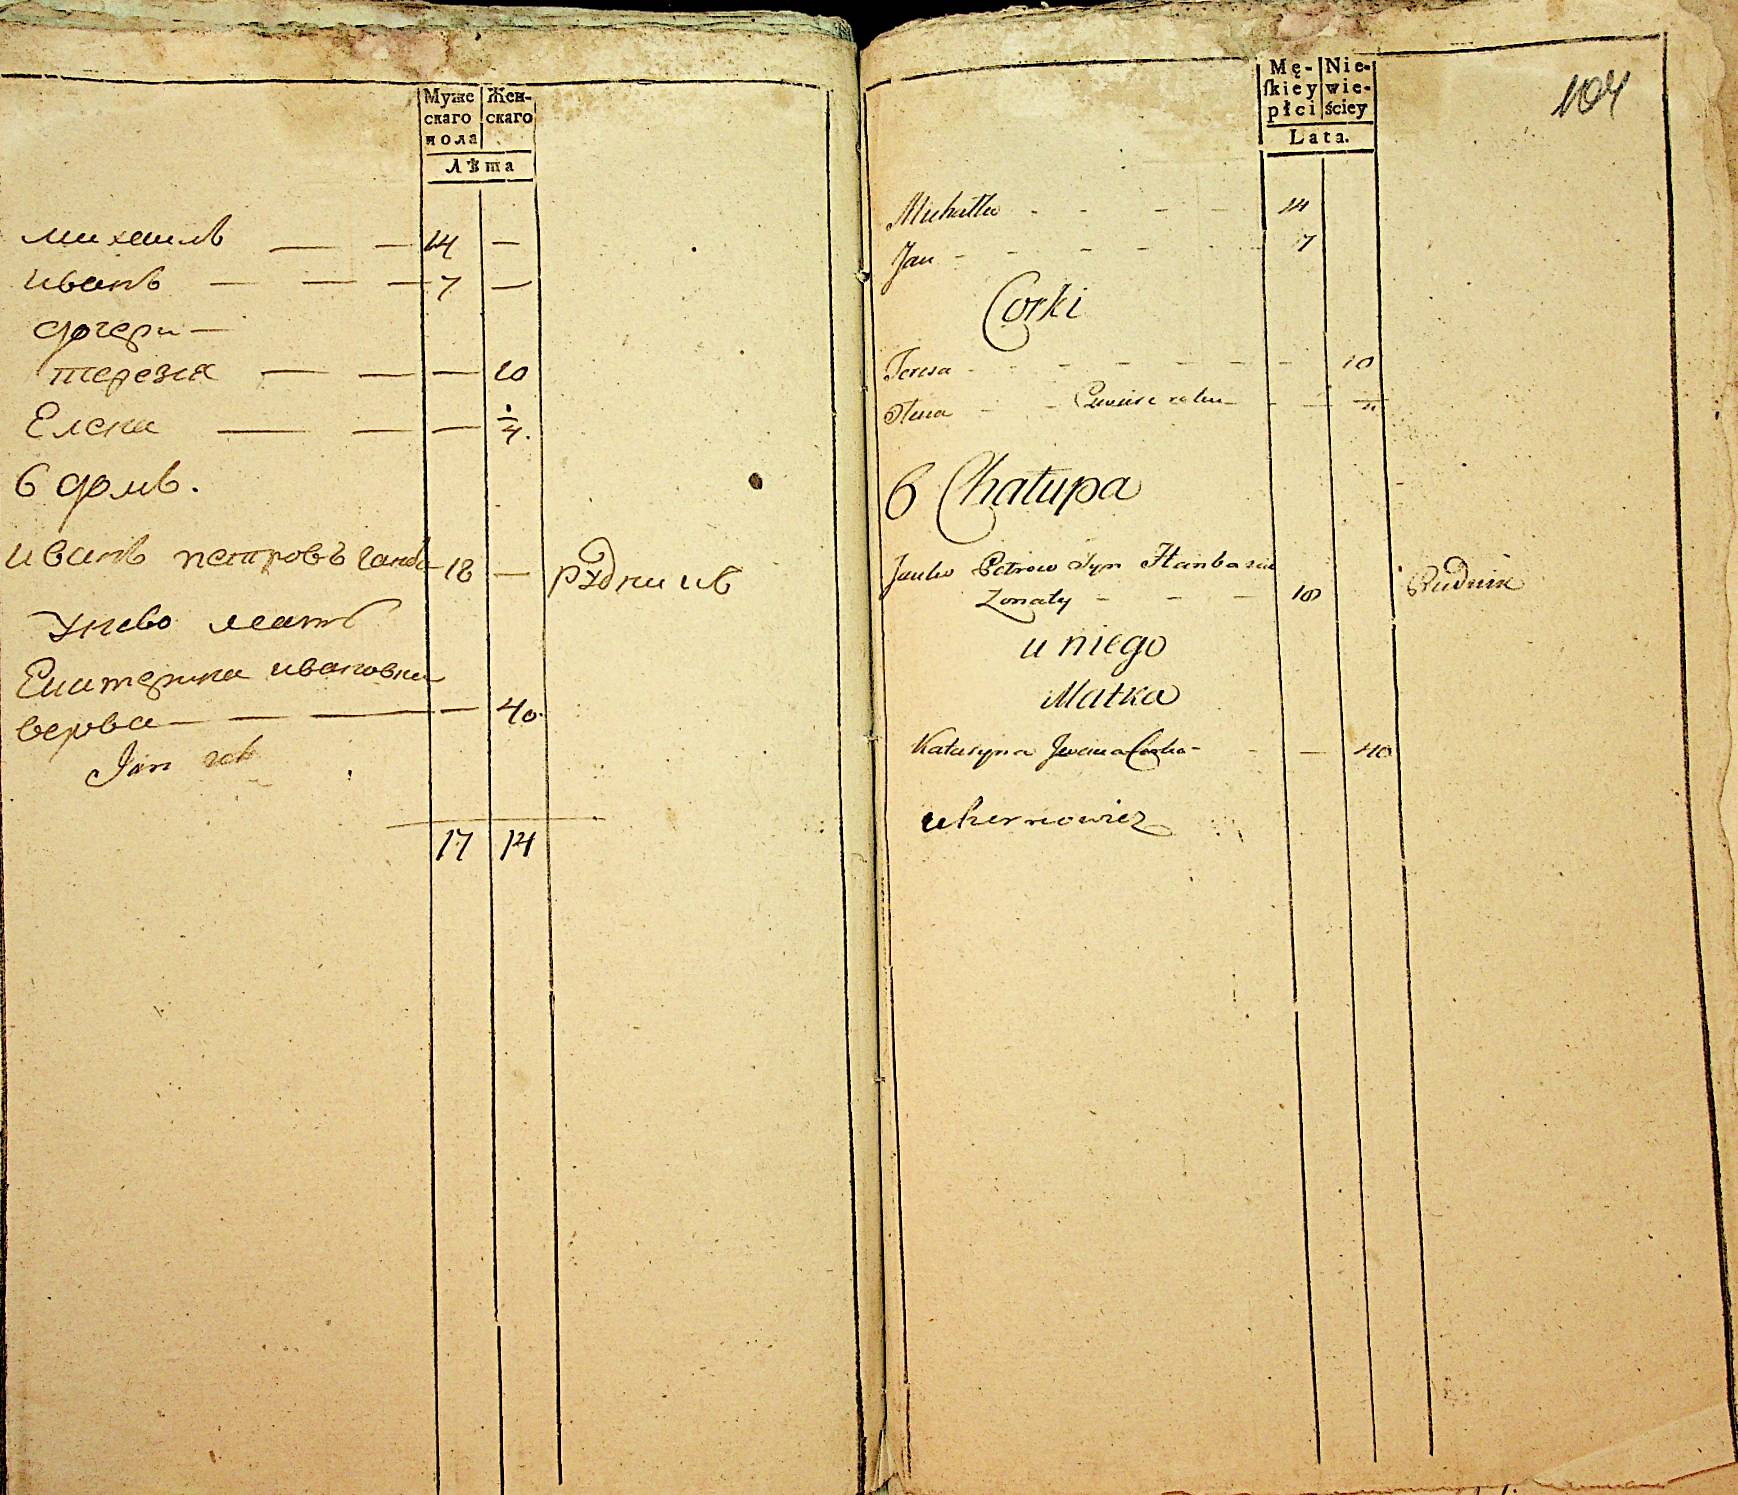 Муже
скаго
пола
Жен-
скаго
Лѣта
михаилъ — — 14 —
иванъ — — — 7 —
дочери —
терезия — — — 10
Елена — — — 1/4.
6 домъ.
иванъ петровъ 18 — рудникъ
унево мать
Екатерина ивановна
вдова — — — — 40.
Jan
17 14
104
Mę-
skiey
płci
Nie-
wie-
ściey
Lata.
Michałko - - - - 14
Jan - - - - - 7
Corki
Teresa - - - - - - 10
Olena - - - - 1/4
6 Chałupa
Janko Petrow Syn Hanbaza
Zonaty - - - 18 Rudnik
u niego
Matka
Katarzyna Jwana Corka - - - 40